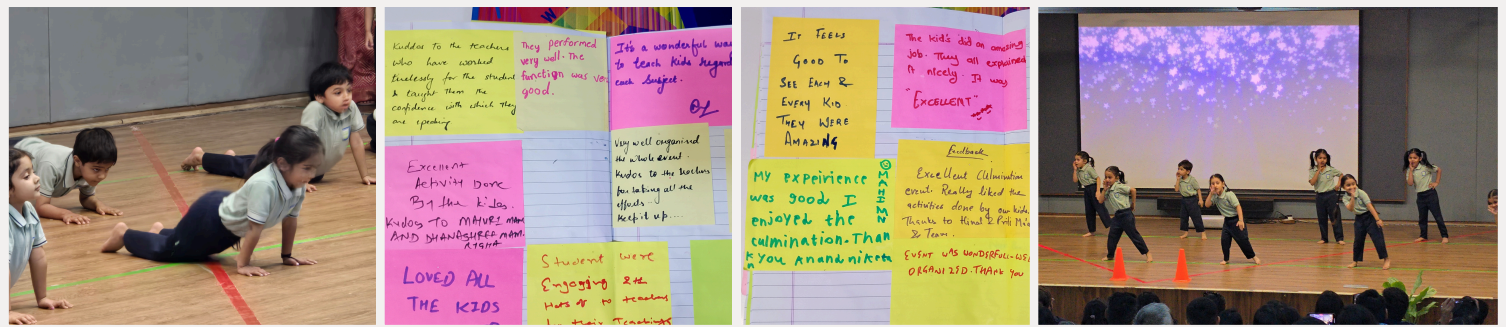 Kuddos to the teachers
who have worked
tirelessly for the student
& taught them the
confidence with which they
are speaking.
They performed
very well. The
function was very
good.
It's a wonderful way
to teach kids regard
each subject.
Excellent
Activity Done
By the kids.
Kudos TO MAYURI MAM
AND DHANASHREE MAM.
Very well organised
the whole event.
Kudos to the teachers
for taking all the
efforts.
Keep it up....
LOVED ALL
THE KIDS
Student were
Engaging &
Hats of to teachers
IT FEELS
GOOD TO
SEE EACH &
EVERY KID
THEY WERE
AMAZING
The kid's did an amazing
job. They all explained
it nicely. It was
"EXCELLENT"
MY expeirience
was good I
enjoyed the
culmination. Than
k you Anand niketa
n
MAHIMN
Feedback
Excellent Culmination
event. Really liked the
activities done by our kids.
Thanks to Hinal & Priti Ma
& Team.
EVENT WAS WONDERFULL-WE
ORGANIZED. THANK YOU